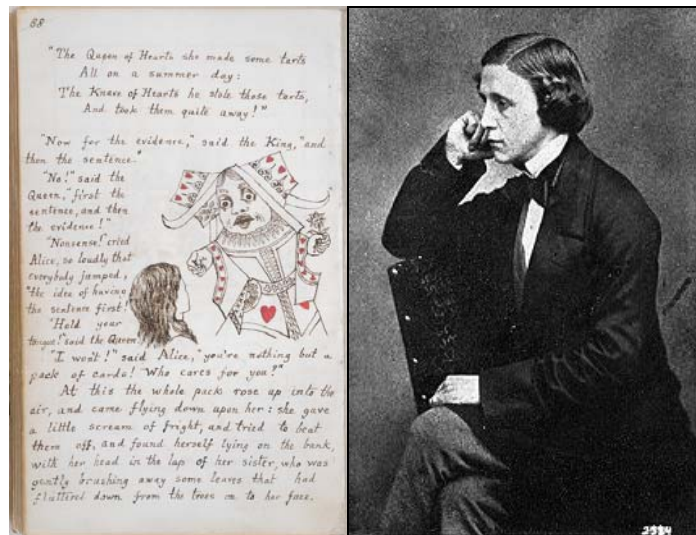 68
"The Queen of Hearts she made some tarts
All on a summer day:
The Knave of Hearts he stole those tarts,
And took them quite away!"
"Now for the evidence," said the King, "and
then the sentence."
"No!" said the
Queen, "first the
sentence, and then
the evidence!"
"Nonsense!" cried
Alice, so loudly that
everybody jumped,
"the idea of having
the sentence first!"
"Hold your
tongue!" said the Queen.
"I won't!" said Alice, "you're nothing but a
pack of cards! Who cares for you?"
At this the whole pack rose up into the
air, and came flying down upon her: she gave
a little scream of fright, and tried to beat
them off, and found herself lying on the bank,
with her head in the lap of her sister, who was
gently brushing away some leaves that had
fluttered down from the trees on to her face.
2584